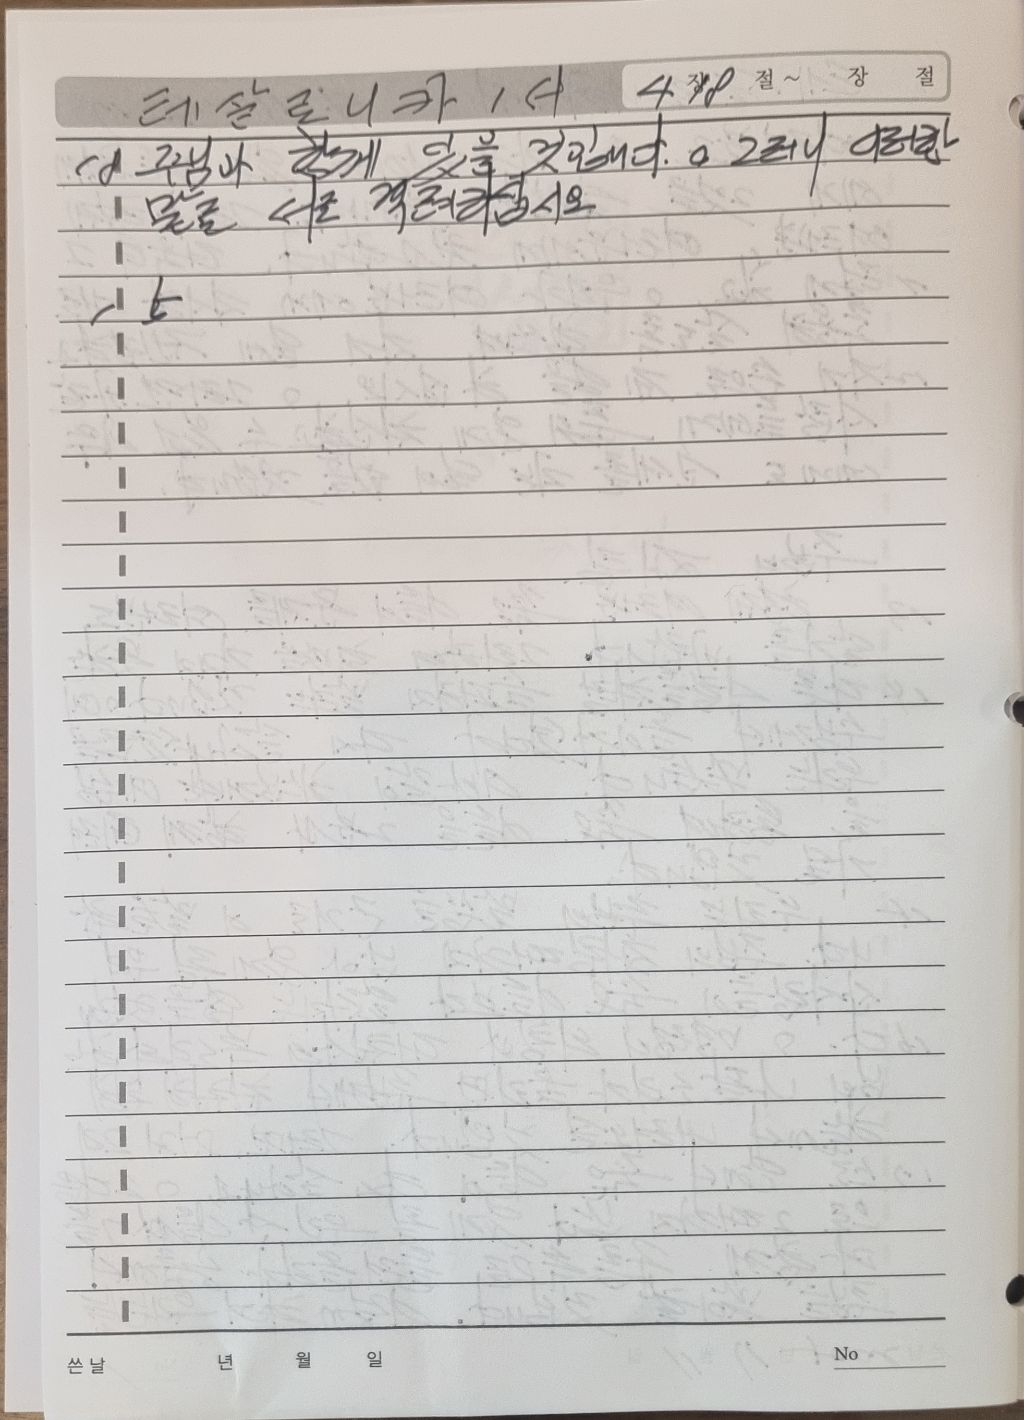 테살로니카 1서 4장 18 절~ 장 절
18 주님과 함께 있을 것입니다. 그러니 이러한
말로 서로 격려하십시오
쓴날 년 월 일 No